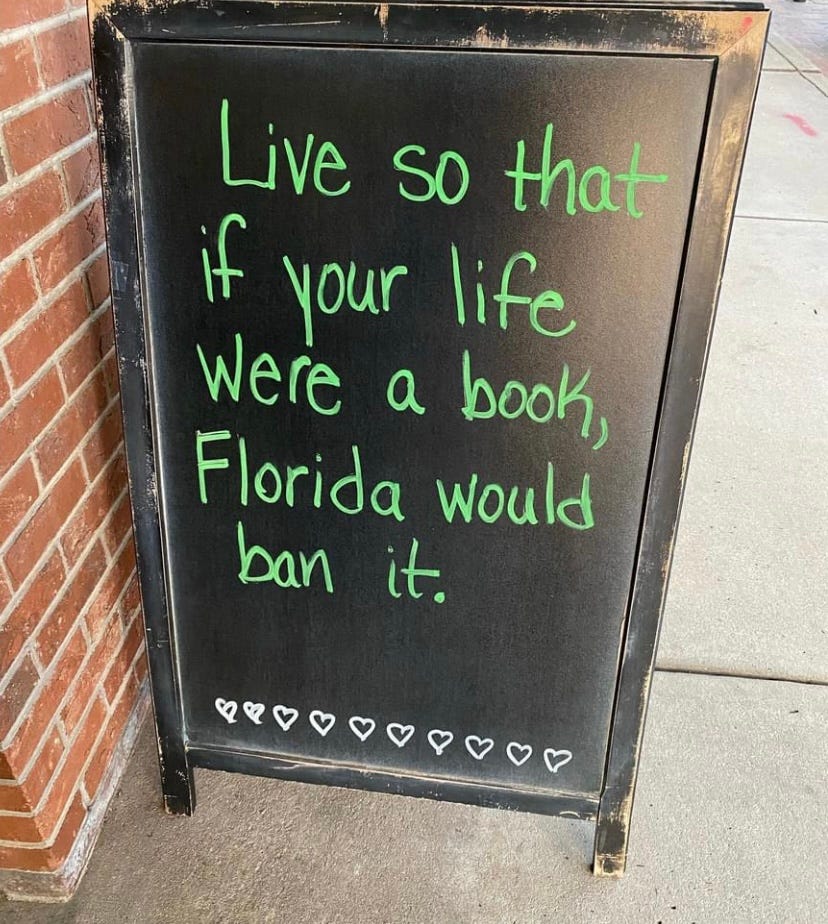 Live so that
if your life
were a book,
Florida would
ban it.